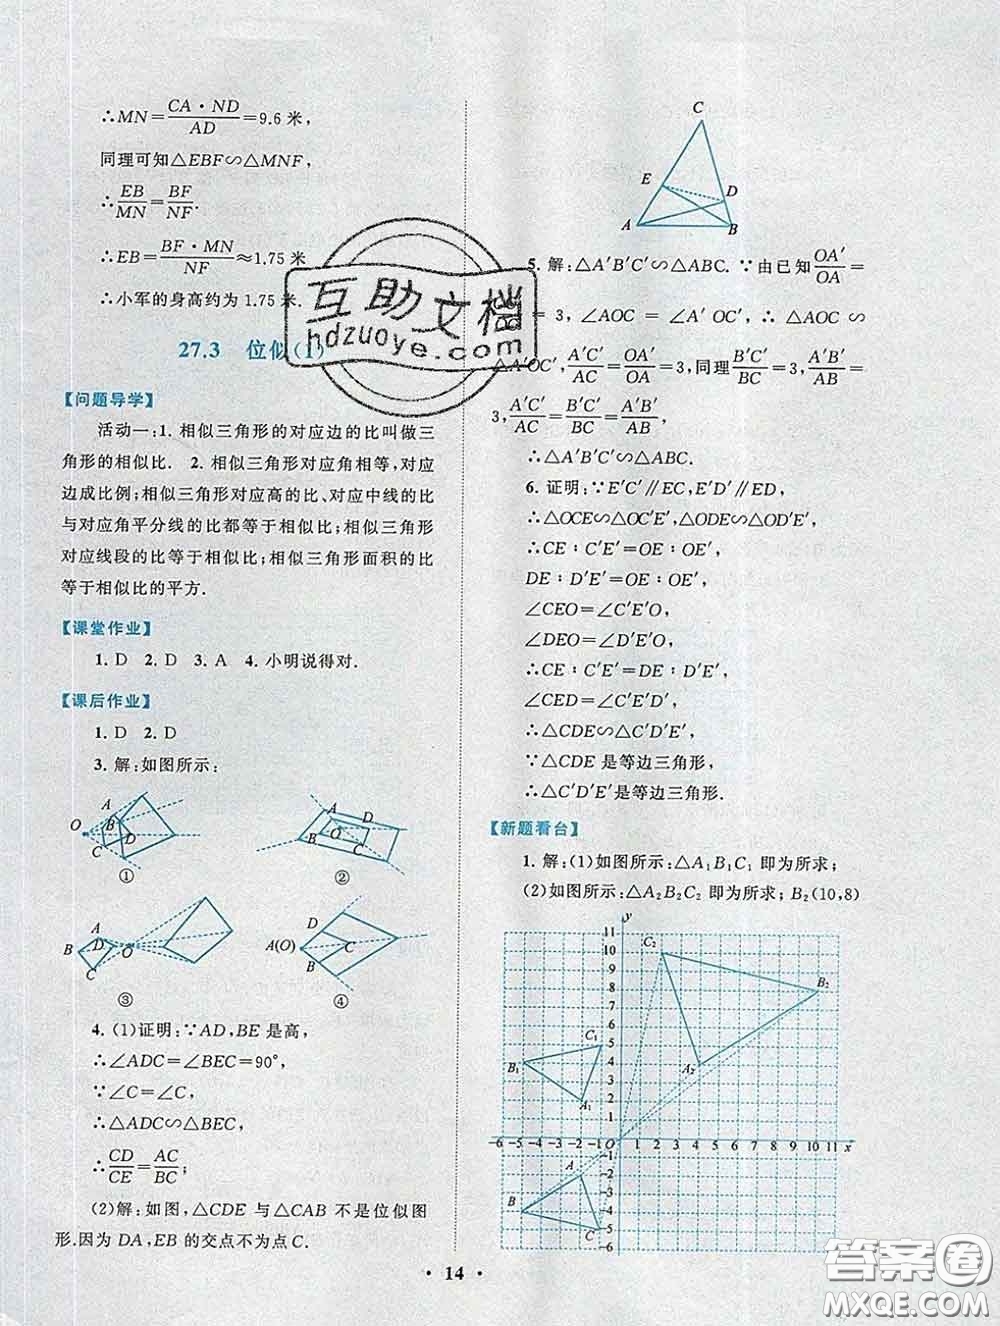 ∴MN=CA·ND/AD=9.6 米,
同理可知△EBF∽△MNF,
∴EB/MN=BF/NF.
∴EB=BF·MN/NF≈1.75 米
∴小军的身高约为 1.75 米.
27.3 位似(1)
【问题导学】
活动一:1. 相似三角形的对应边的比叫做三
角形的相似比. 2. 相似三角形对应角相等,对应
边成比例;相似三角形对应高的比、对应中线的比
与对应角平分线的比都等于相似比;相似三角形
对应线段的比等于相似比;相似三角形面积的比
等于相似比的平方.
【课堂作业】
1. D 2. D 3. A 4. 小明说得对.
【课后作业】
1. D 2. D
3. 解:如图所示:
O A B C D
①
A D O B C
②
A B D O C
③
D A(O) C B
④
4. (1)证明:∵AD,BE 是高,
∴∠ADC=∠BEC=90°,
∵∠C=∠C,
∴△ADC∽△BEC,
∴CD/CE=AC/BC;
(2)解:如图,△CDE 与△CAB 不是位似图
形.因为 DA,EB 的交点不为点 C.
C
E
D
A B
5. 解:△A′B′C′∽△ABC. ∵由已知OA′/OA=
= 3, ∠AOC = ∠A′ OC′, ∴ △AOC ∽
△A′OC′,A′C′/AC=OA′/OA=3,同理B′C′/BC=3,A′B′/AB=
3,A′C′/AC=B′C′/BC=A′B′/AB,
∴△A′B′C′∽△ABC.
6. 证明:∵E′C′∥EC,E′D′∥ED,
∴△OCE∽△OC′E′,△ODE∽△OD′E′,
∴CE∶C′E′=OE∶OE′,
DE∶D′E′=OE∶OE′,
∠CEO=∠C′E′O,
∠DEO=∠D′E′O,
∴CE∶C′E′=DE∶D′E′,
∠CED=∠C′E′D′,
∴△CDE∽△C′D′E′,
∵△CDE 是等边三角形,
∴△C′D′E′是等边三角形.
【新题看台】
1. 解:(1)如图所示:△A₁B₁C₁ 即为所求;
(2)如图所示:△A₂B₂C₂ 即为所求;B₂(10,8)
y
11
10
9
8
7
6
5
4
3
2
1
C₂
B₂
A₂
C₁
B₁
A₁
-6 -5 -4 -3 -2 -1 O 1 2 3 4 5 6 7 8 9 10 11 x
-1
-2
-3
-4
-5
-6
A
B
C
· 14 ·
互助文档
hdzuoye.com
答案圈
MXQE.COM